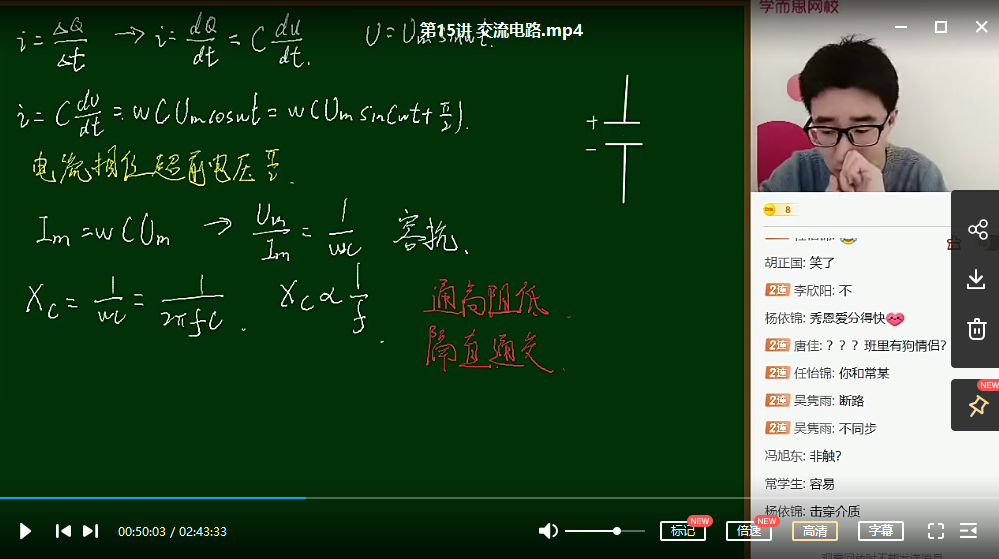 第15讲 交流电路.mp4
学而思网校
i = ΔQ/Δt → i = dQ/dt = C du/dt. U = Um sinωt.
i = C du/dt = wCUm coswt = wCUm sin(wt+π/2).
+
-
电流相位超前电压π/2.
Im = wCUm → Um/Im = 1/wc 容抗.
Xc = 1/wc = 1/2πfC. Xc ∝ 1/f.
通高阻低.
隔直通交.
8
胡正国: 笑了
2连 李欣阳: 不
杨依锦: 秀恩爱分得快💕
2连 唐佳: ？？？班里有狗情侣?
2连 任怡锦: 你和常某
2连 吴隽雨: 断路
2连 吴隽雨: 不同步
冯旭东: 非触?
常学生: 容易
杨依锦: 击穿介质
NEW
00:50:03 / 02:43:33
标记 NEW
倍速 NEW
高清
字幕